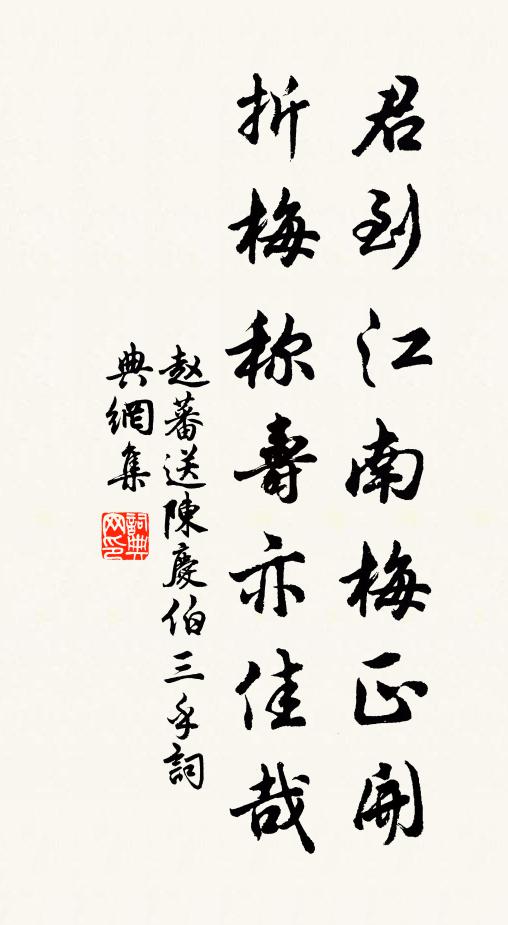 君到江南梅正開
折梅称壽亦佳哉
赵蕃送陳慶伯三手詞
典網集
詞典
网印